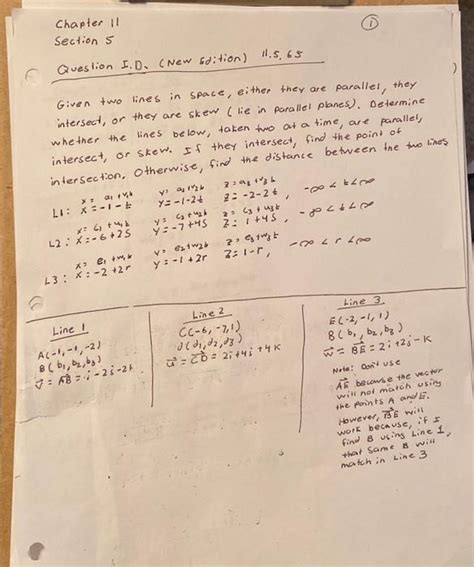 Chapter 11
①
Section 5
Question I.D. (New Edition) 11.5.65
Given two lines in space, either they are parallel, they
intersect, or they are skew (lie in parallel planes). Determine
whether the lines below, taken two at a time, are parallel,
intersect, or skew. If they intersect, find the point of
intersection. Otherwise, find the distance between the two lines
x = a₁ + v₁t y = a₂ + v₂t z = a₃ + v₃t
L1: x = -1 - t y = -1 - 2t z = -2 - 2t, -∞ < t < ∞
x = c₁ + u₁t y = c₂ + u₂t z = c₃ + u₃t
L2: x = -6 + 2S y = -7 + 4S z = 1 + 4S, -∞ < t < ∞
x = e₁ + w₁t y = e₂ + w₂t z = e₃ + w₃t
L3: x = -2 + 2r y = -1 + 2r z = 1 - r, -∞ < r < ∞
Line 1
A(-1, -1, -2)
B(b₁, b₂, b₃)
v = AB = -i - 2j - 2k
Line 2
C(-6, -7, 1)
D(d₁, d₂, d₃)
u = CD = 2i + 4j + 4k
Line 3
E(-2, -1, 1)
B(b₁, b₂, b₃)
w = BE = 2i + 2j - k
Note: Don't use
AE because the vector
will not match using
the points A and E.
However, BE will
work because, if I
find B using Line 1,
that same B will
match in Line 3